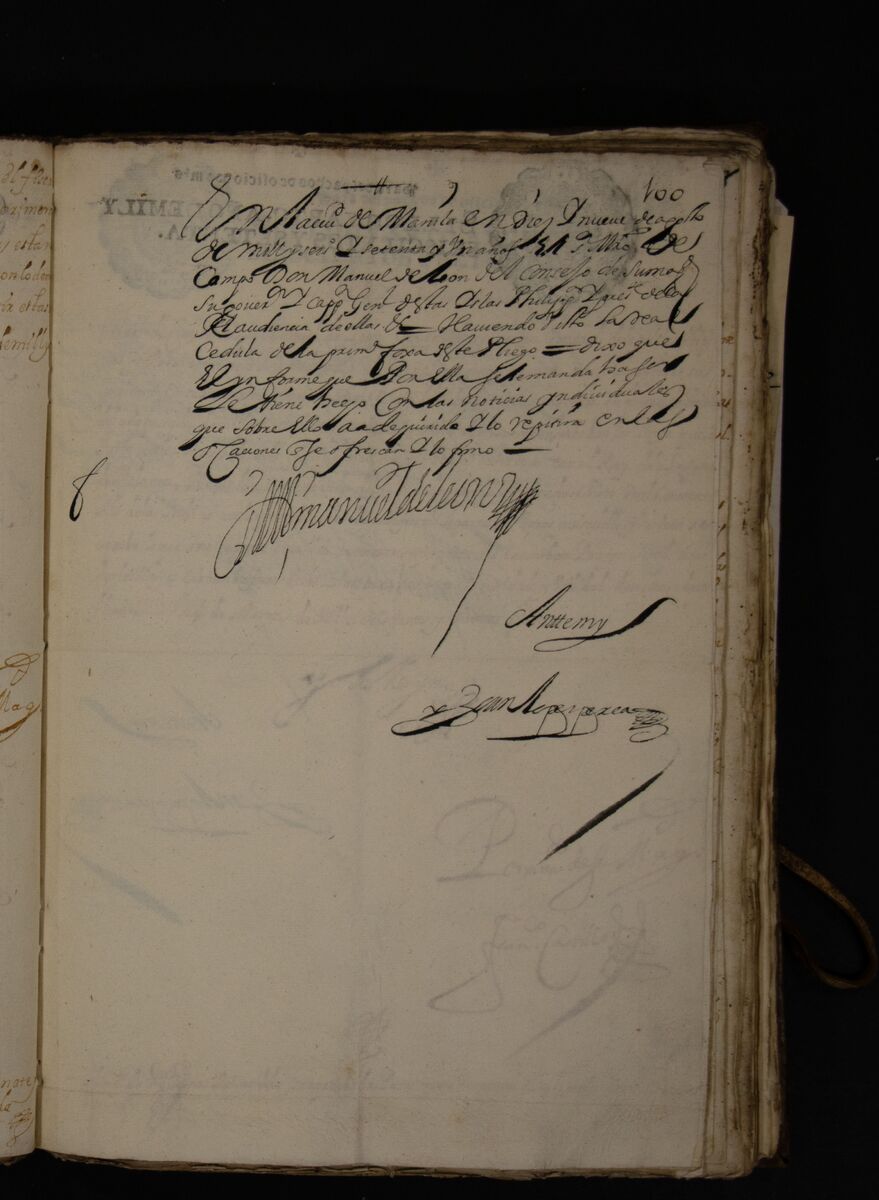 100
En la ciud de Manila en diez y nueve de agosto
de mill y seis.s y setenta y un años El S.r M.ro de
Campo Don Manuel de leon del Consejo de su mag.d
su gover.or y capp.n Gen.l destas Yslas Philipp.s y press.te de la
R.l audiencia de ellas &.a Haviendo visto la real
Cedula de la prim.a foxa deste pliego = dixo que
El informe que Por Ella se le manda haser
Le tiene hecho Con las noticias yndividuales
que sobre Ello a adquirido Y lo repitira en las
ocaciones q̃ se ofrescan Y lo firmo =
D. manuel de leon
Antte my
Juan